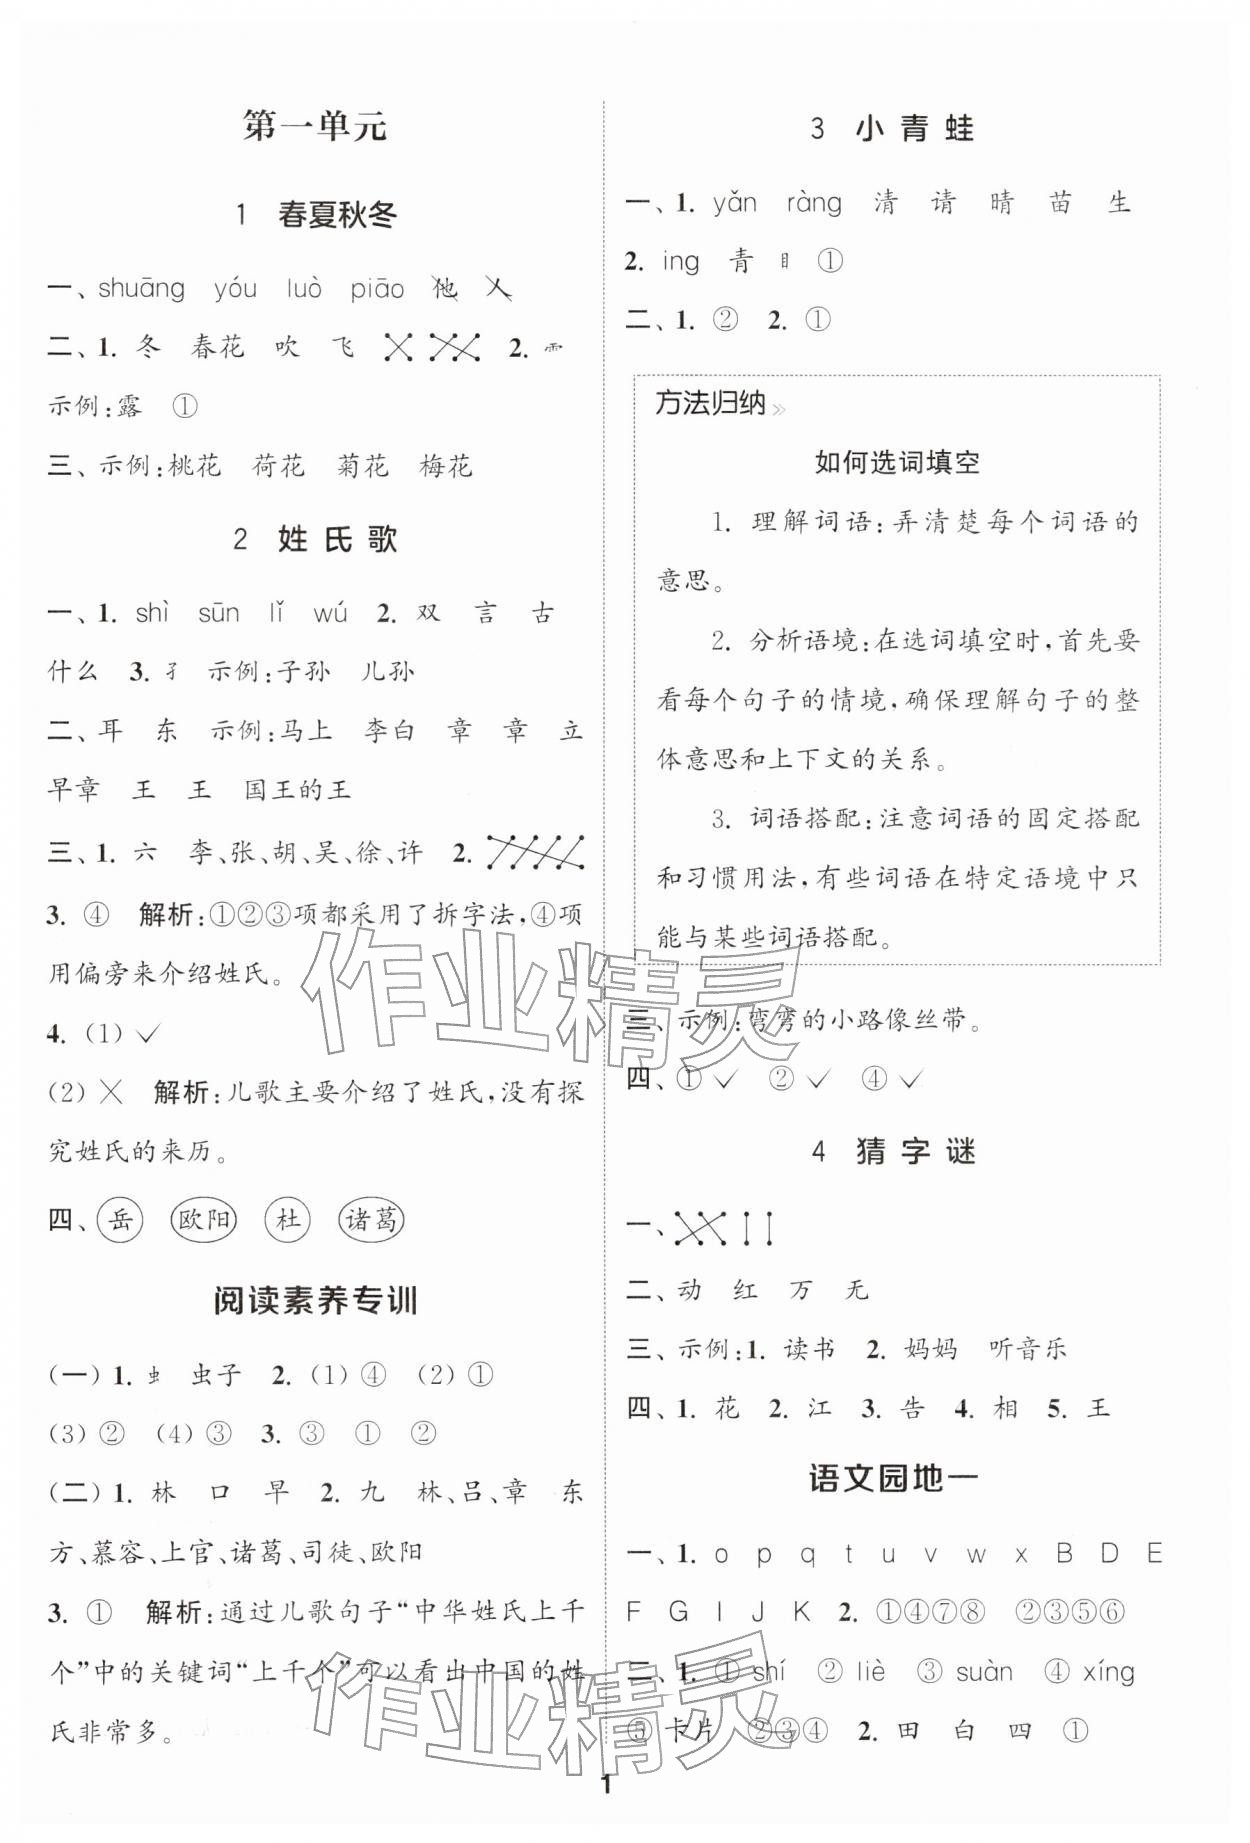 第一单元
1 春夏秋冬
一、shuāng yóu luò piāo 他 人
二、1. 冬 春花 吹 飞 2. ⻗
示例:露 ①
三、示例:桃花 荷花 菊花 梅花
2 姓氏歌
一、1. shì sūn lǐ wú 2. 双 言 古
什么 3. 孑 示例:子孙 儿孙
二、耳 东 示例:马上 李白 章 章 立
早章 王 王 国王的王
三、1. 六 李、张、胡、吴、徐、许 2.
3. ④ 解析:①②③项都采用了拆字法,④项
用偏旁来介绍姓氏。
4. (1) ✓
(2) ✕ 解析:儿歌主要介绍了姓氏,没有探
究姓氏的来历。
四、岳 欧阳 杜 诸葛
阅读素养专训
(一)1. 虫 虫子 2. (1) ④ (2) ①
(3) ② (4) ③ 3. ③ ① ②
(二)1. 林 口 早 2. 九 林、吕、章 东
方、慕容、上官、诸葛、司徒、欧阳
3. ① 解析:通过儿歌句子“中华姓氏上千
个”中的关键词“上千个”可以看出中国的姓
氏非常多。
3 小青蛙
一、1. yǎn ràng 清 请 晴 苗 生
2. ing 青 目 ①
二、1. ② 2. ①
方法归纳
如何选词填空
1. 理解词语:弄清楚每个词语的
意思。
2. 分析语境:在选词填空时,首先要
看每个句子的情境,确保理解句子的整
体意思和上下文的关系。
3. 词语搭配:注意词语的固定搭配
和习惯用法,有些词语在特定语境中只
能与某些词语搭配。
三、示例:弯弯的小路像丝带。
四、① ✓ ② ✓ ④ ✓
4 猜字谜
一、
二、动 红 万 无
三、示例:1. 读书 2. 妈妈 听音乐
四、1. 花 2. 江 3. 告 4. 相 5. 王
语文园地一
一、1. o p q t u v w x B D E
F G I J K 2. ①④⑦⑧ ②③⑤⑥
二、1. ① shí ② liè ③ suàn ④ xíng
⑤ 卡片 ②③④ 2. 田 白 四 ①
1
作业精灵
作业精灵